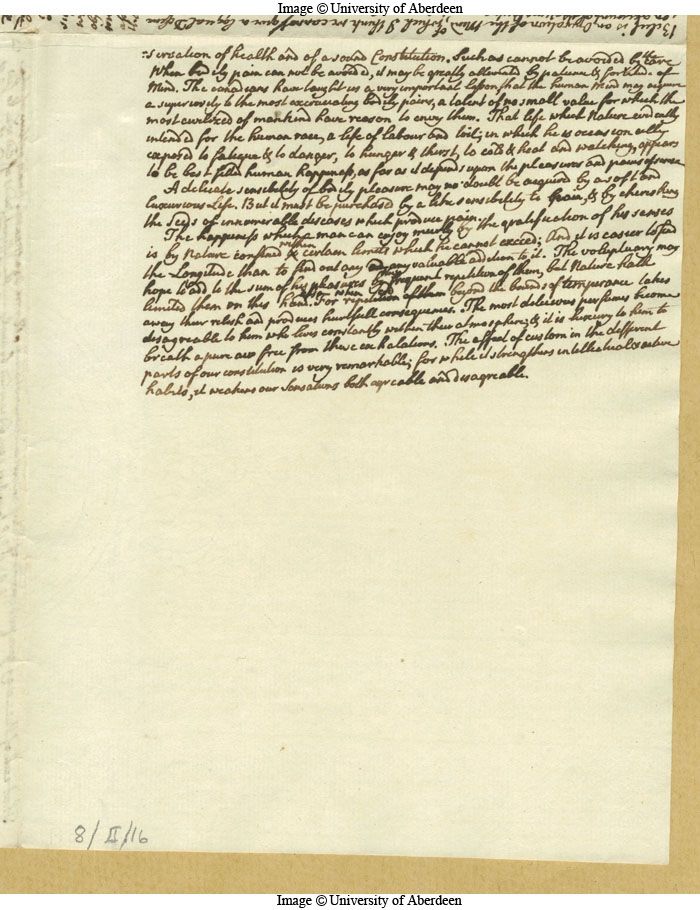 Image © University of Aberdeen
:servation of health and of a sound Constitution. Such as cannot be avoided by this care
When bodily pain can not be avoided, it may be greatly alleviated by patience & fortitude of
Mind. The canadians have taught us a very important lesson, that the human Mind may acquire
a superiority to the most excruciating bodily pains, a talent of no small value for which the
most civilized of mankind have reason to envy them. That life which Nature evidently
intended for the human race, a life of labour and toil; in which he is occasionally
exposed to fatigue & to danger, to hunger & thirst, to cold & heat and watching, appears
to be best fitted human happiness, as far as it depends upon the pleasures and pains of sense
A delicate sensibility of bodily pleasure may no doubt be acquired by a soft and
Luxurious Life. But it must be purchased by a like sensibility to pain, & by cherishing
the Seeds of innumerable diseases which produce pain.
The happiness which a man can enjoy meerly by the gratification of his senses
is by Nature confined within certain limits which he cannot exceed; And it is easier to find
the Longitude than to find out any valuable addition to it. The voluptuary may
hope to add to the sum of his pleasures by frequent repetition of them, but Nature hath
limited them on this hand. For repetition of them beyond the bounds of temperance takes
away their relish and produces hurtfull consequences. The most delicious perfumes become
disagreable to him who lives constantly within their atmosphere; & it is luxury to him to
breath a pure air free from these exhalations. The effect of custom in the different
parts of our constitution is very remarkable; for while it strengthens intellectual & active
habits, it weakens our Sensations both agreable and disagreable.
8/II/16
Image © University of Aberdeen